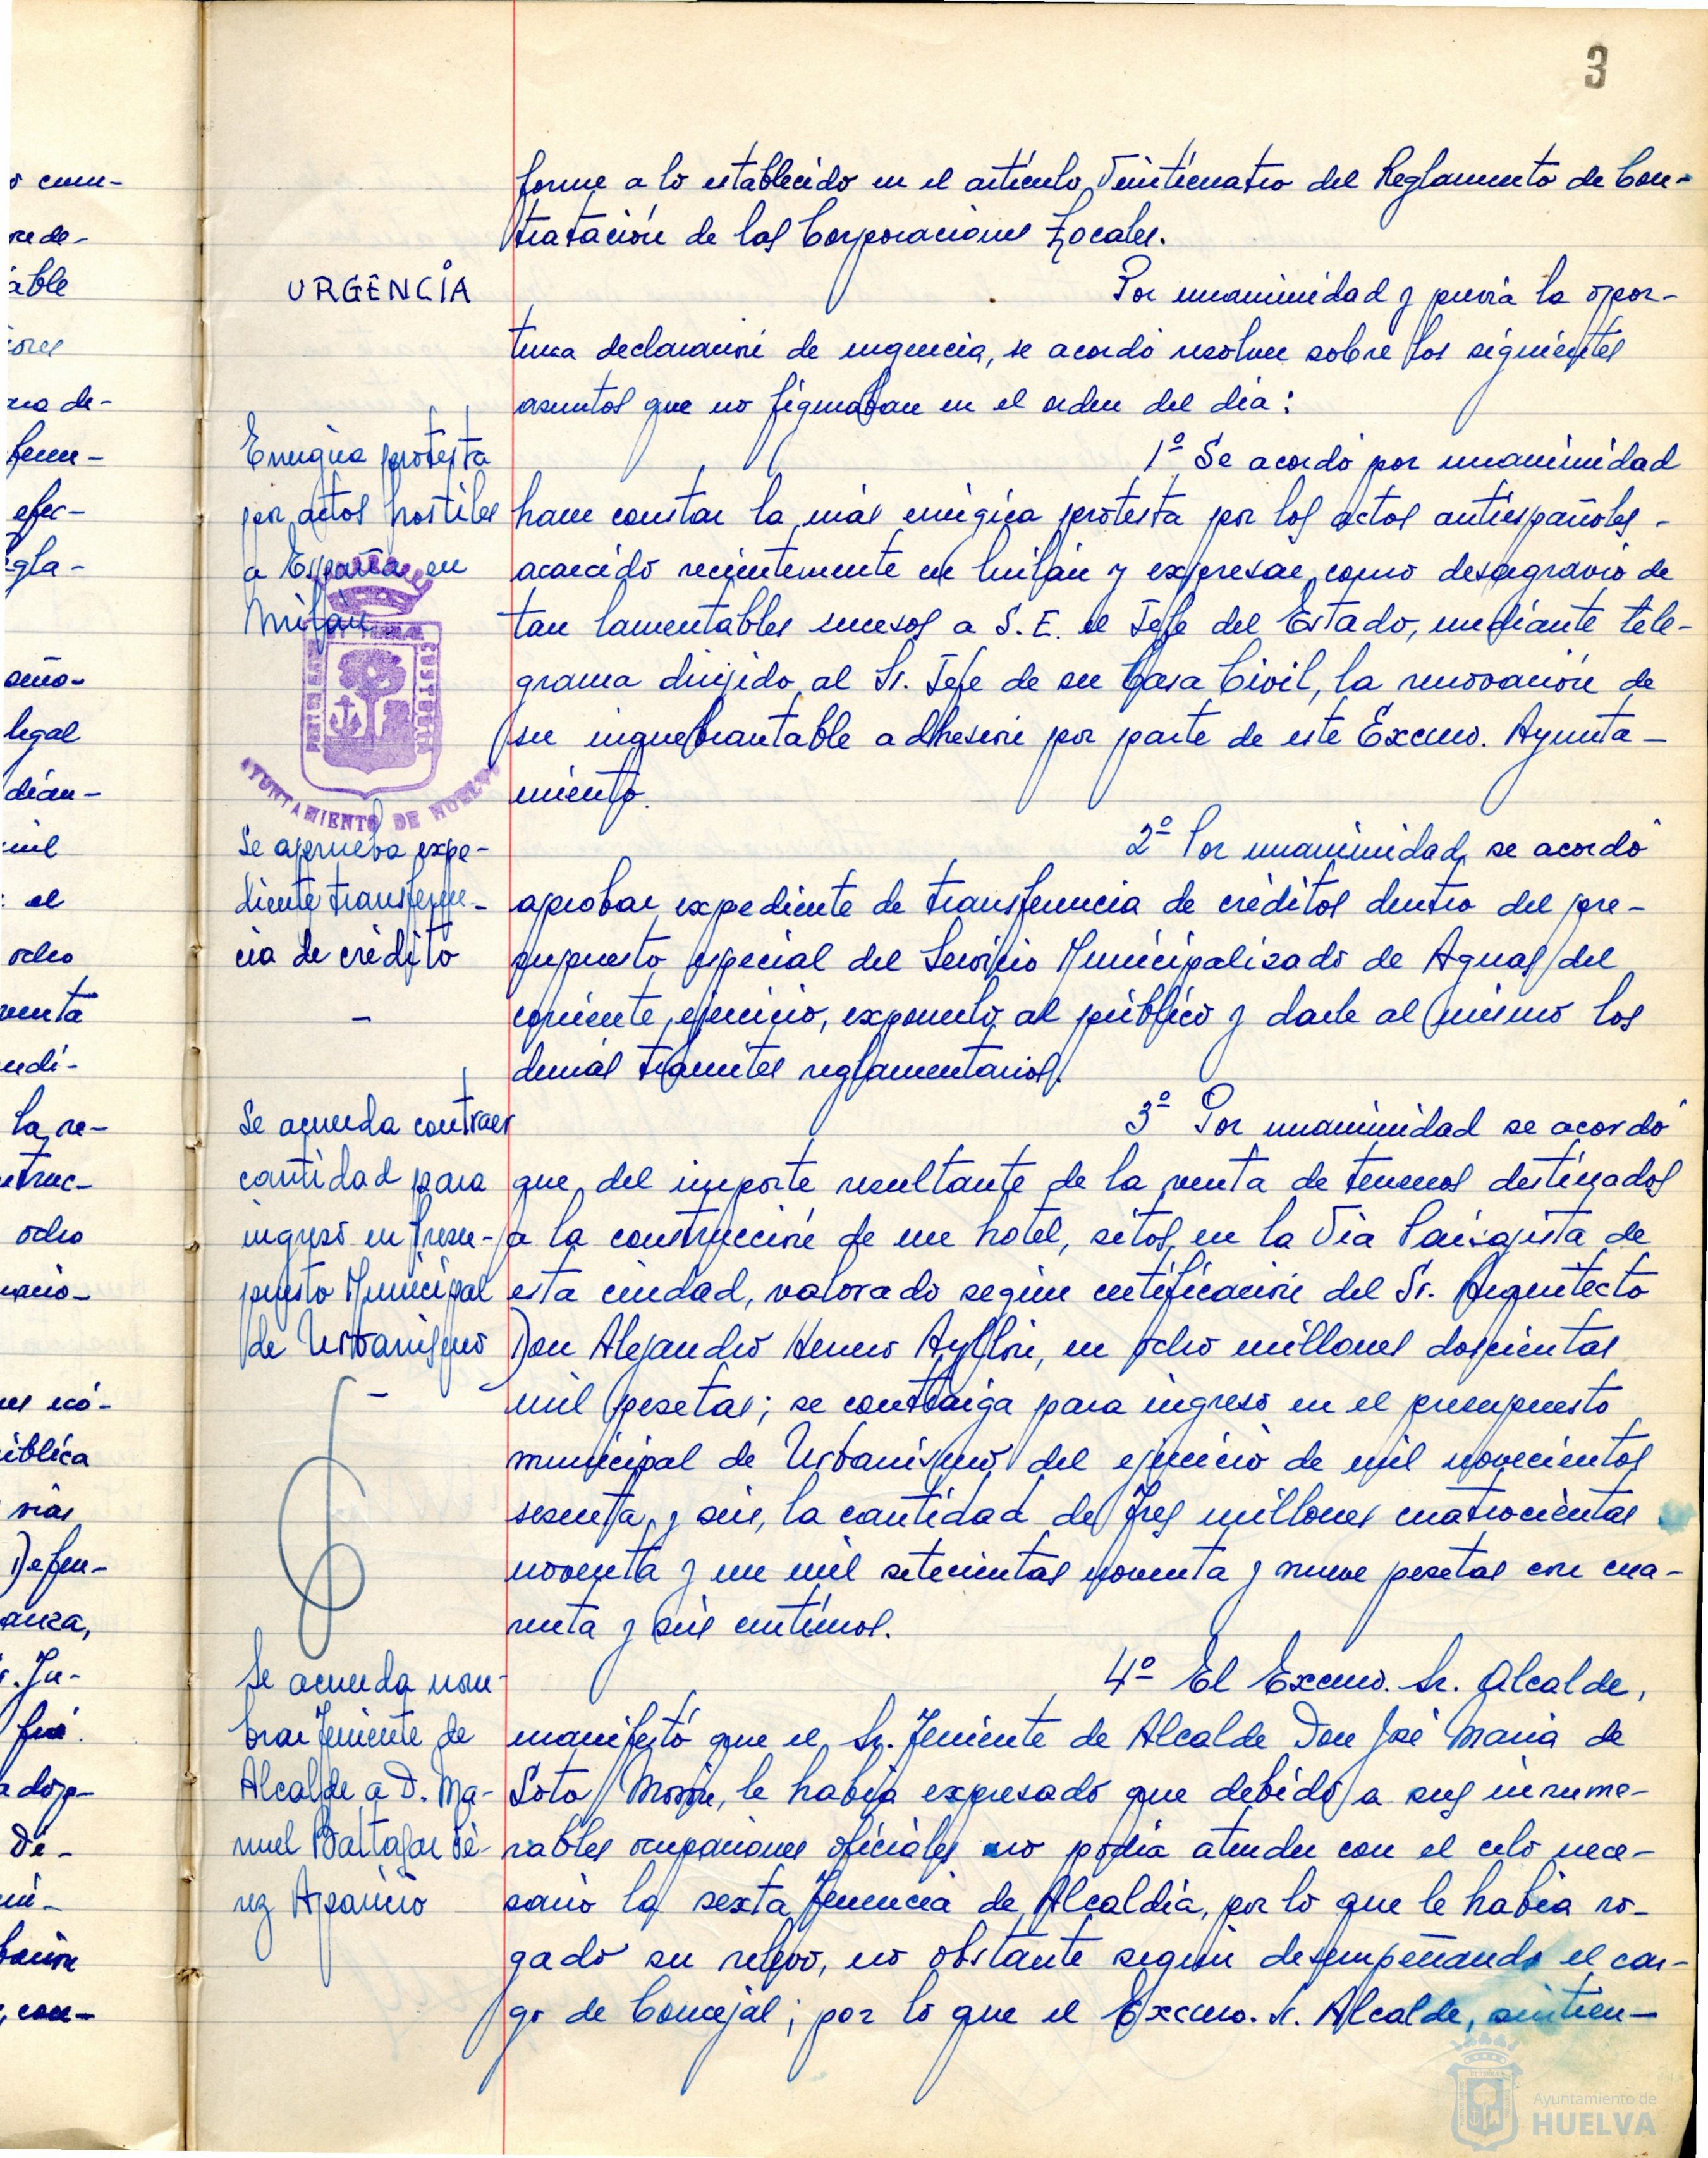 3
forme a lo establecido en el artículo Veinticuatro del Reglamento de Con-
tratación de las Corporaciones Locales.
URGENCIA
Por unanimidad y previa la opor-
tuna declaración de urgencia, se acordó resolver sobre los siguientes
asuntos que no figuraban en el orden del día:
Enérgica protesta
por actos hostiles
a España en
Milán
1º Se acordó por unanimidad
hacer constar la más enérgica protesta por los actos antiespañoles -
acaecido recientemente en Milán y expresar, como desagravio de
tan lamentables sucesos a S. E. el Jefe del Estado, mediante tele-
grama dirigido al Sr. Jefe de su Casa Civil, la renovación de
su inquebrantable adhesión por parte de este Excmo. Ayunta-
miento.
AYUNTAMIENTO DE HUELVA
Se aprueba expe-
diente transferen-
cia de crédito
-
2º Por unanimidad, se acordó
aprobar expediente de transferencia de créditos dentro del pre-
supuesto especial del Servicio Municipalizado de Aguas del
corriente ejercicio, exponerlo al público y darle al mismo los
demás trámites reglamentarios.
Se acuerda contraer
cantidad para
ingreso en Presu-
puesto Municipal
de Urbanismo
-
3º Por unanimidad se acordó
que del importe resultante de la venta de terrenos destinados
a la construcción de un hotel, sitos en la Vía Paisajista de
esta ciudad, valorado según certificación del Sr. Arquitecto
Don Alejandro Herrero Ayllón, en ocho millones doscientas
mil pesetas; se contraiga para ingreso en el presupuesto
municipal de Urbanismo del ejercicio de mil novecientos
sesenta y seis, la cantidad de tres millones cuatrocientas
noventa y un mil setecientas noventa y nueve pesetas con cua-
renta y seis centimos.
Se acuerda nom-
brar Teniente de
Alcalde a D. Ma-
nuel Baltasar Pé-
rez Aparicio
4º El Excmo. Sr. Alcalde,
manifestó que el Sr. Teniente de Alcalde Don José María de
Soto Morón, le había expresado que debido a sus innume-
rables ocupaciones oficiales no podía atender con el celo nece-
sario la sexta Tenencia de Alcaldía, por lo que le había ro-
gado su relevo, no obstante seguir desempeñando el car-
go de Concejal; por lo que el Excmo. Sr. Alcalde, sintien-
Ayuntamiento de
HUELVA